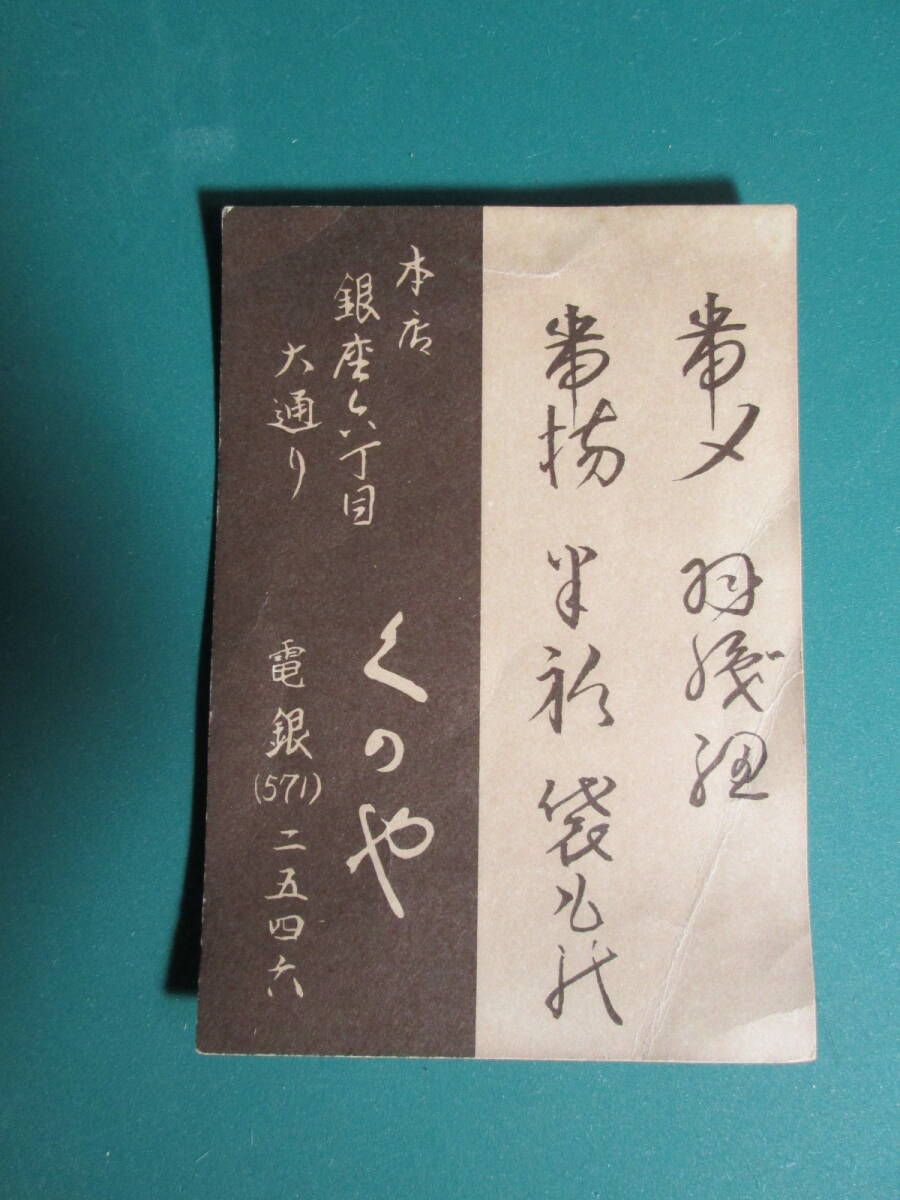 帯〆 羽織紐
帯揚 半衿 袋もの
本店
銀座六丁目
大通り
くのや
電銀(571)二五四六